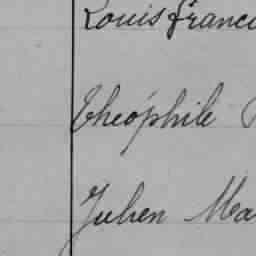 Louis Franc
Théophile
Julien Ma